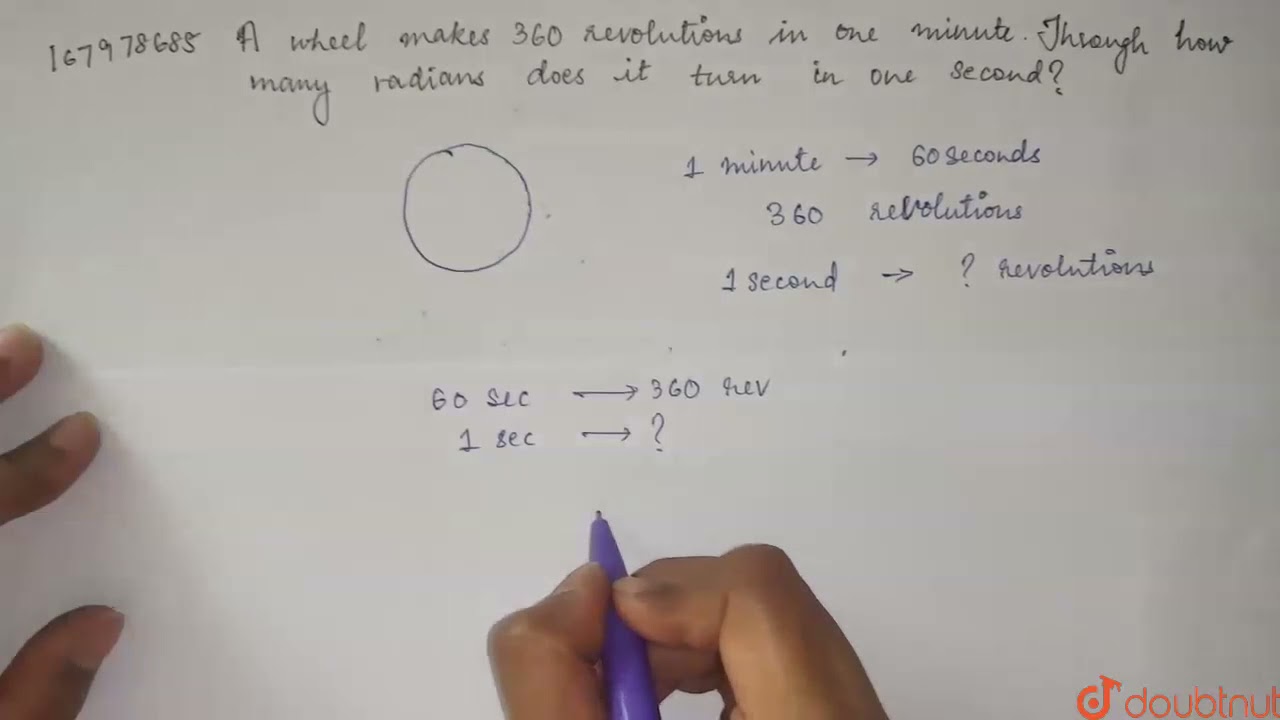 167978685 A wheel makes 360 revolutions in one minute. Through how
many radians does it turn in one second?
1 minute → 60 seconds
360 revolutions
1 second → ? revolutions
60 sec → 360 rev
1 sec → ?
doubtnut